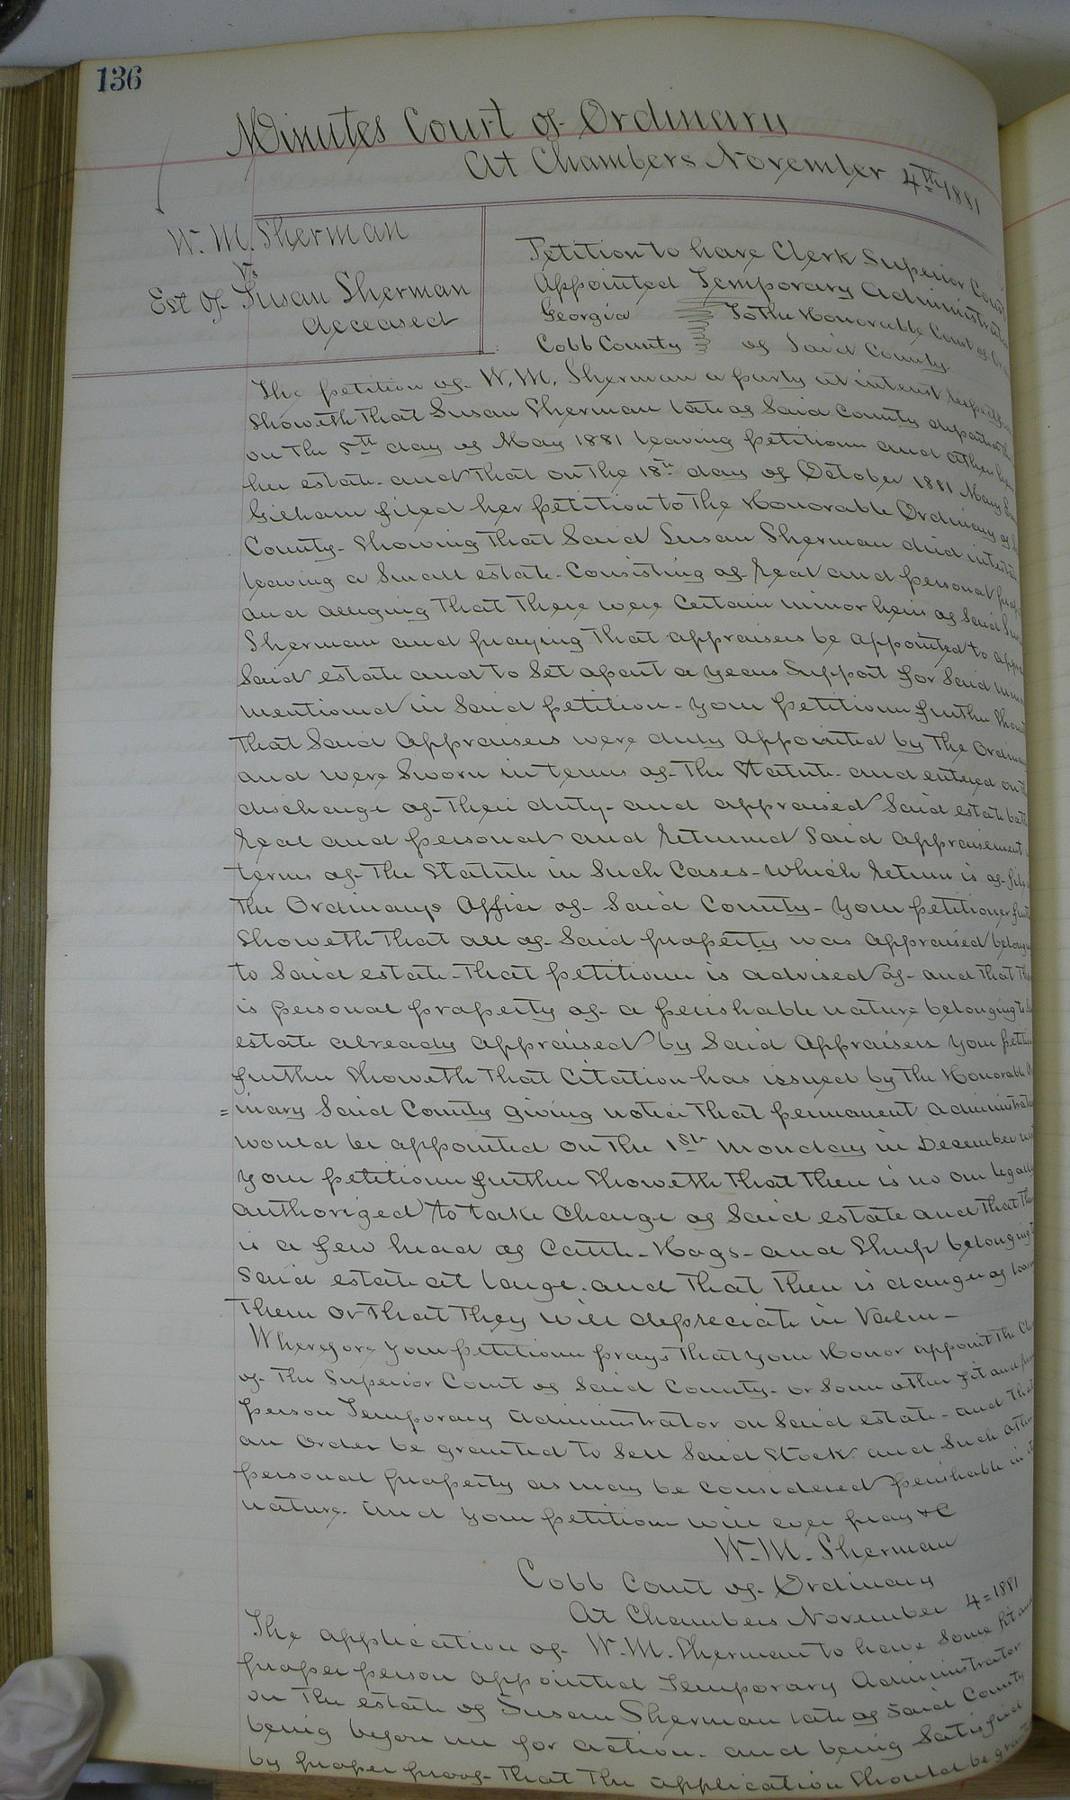 136
Minutes Court of Ordinary
At Chambers November 4th 1881
W. M. Sherman
Vs
Est Of Susan Sherman
deceased
Petition to have Clerk Superior Court
Appointed Temporary Administrator
Georgia To the Honorable Court of
Cobb County of Said County
The petition of W. M. Sherman a party at interest
Showeth that Susan Sherman late of Said County departed
on the 5th day of May 1881 leaving petitioner and other
her estate and that on the 18th day of October 1881 Mary
Gilham filed her petition to the Honorable Ordinary of
County Showing that Said Susan Sherman died
leaving a Small estate Consisting of real and personal
and alleging that there were Certain minor heirs of Said
Sherman and praying that appraisers be appointed to
Said estate and to Set apart a years Support for Said
mentioned in Said petition - Your petitioner further
that Said appraisers were duly appointed by the
and were Sworn in terms of the Statute and entered on
discharge of their duty and appraised Said estate
real and personal and returned Said appraisement
terms of the Statute in Such Cases - which return is of
the Ordinarys Office of Said County - Your petitioner
Showeth that all of Said property was appraised
to Said estate that petitioner is advised of - and that
is personal property of a perishable nature belonging to
estate already appraised by Said appraisers Your
further Showeth that Citation has issued by the Honorable
=inary Said County giving notice that permanent
would be appointed on the 1st Monday in December
Your petitioner further Showeth that there is no one legally
authorized to take Charge of Said estate and that
is a few head of Cattle - Hogs - and Sheep belonging
Said estate at large. and that there is danger of
them or that they will depreciate in Value -
Wherefore your petitioner prays that your Honor appoint the
of the Superior Court of Said County - or Some other fit and
person Temporary Administrator on Said estate - and that
an Order be granted to Sell Said Stock and Such other
personal property as may be Considered perishable in
nature. And your petitioner will ever pray &C
W. M. Sherman
Cobb Court of Ordinary
At Chambers November 4=1881
The application of W. M. Sherman to have Some fit and
proper person appointed Temporary Administrator
on the estate of Susan Sherman late of Said County
being before me for action - and being Satisfied
by proper proof that the application Should be